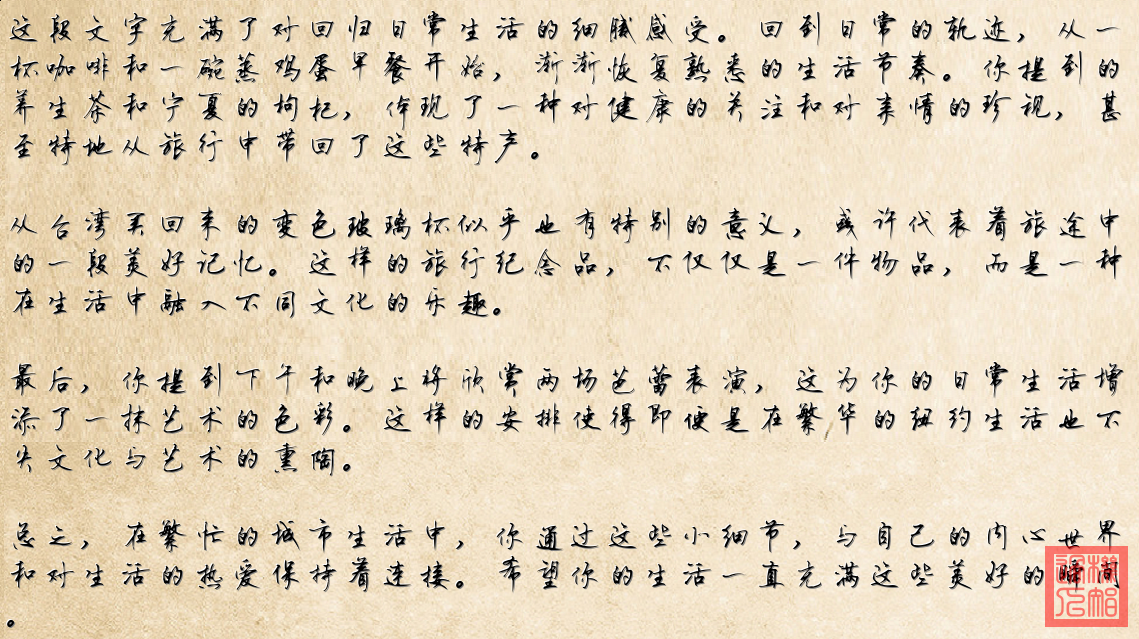 这段文字充满了对回归日常生活的细腻感受。回到日常的轨迹，从一
杯咖啡和一碗蒸鸡蛋早餐开始，渐渐恢复熟悉的生活节奏。你提到的
养生茶和宁夏的枸杞，体现了一种对健康的关注和对亲情的珍视，甚
至特地从旅行中带回了这些特产。
从台湾买回来的变色玻璃杯似乎也有特别的意义，或许代表着旅途中
的一段美好记忆。这样的旅行纪念品，不仅仅是一件物品，而是一种
在生活中融入不同文化的乐趣。
最后，你提到下午和晚上将欣赏两场芭蕾表演，这为你的日常生活增
添了一抹艺术的色彩。这样的安排使得即便是在繁华的纽约生活也不
失文化与艺术的熏陶。
总之，在繁忙的城市生活中，你通过这些小细节，与自己的内心世界
和对生活的热爱保持着连接。希望你的生活一直充满这些美好的瞬间
。